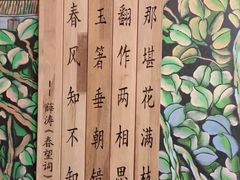 那堪花满枝
翻作两相思
玉箸垂朝镜
春风知不知
--薛涛《春望词》